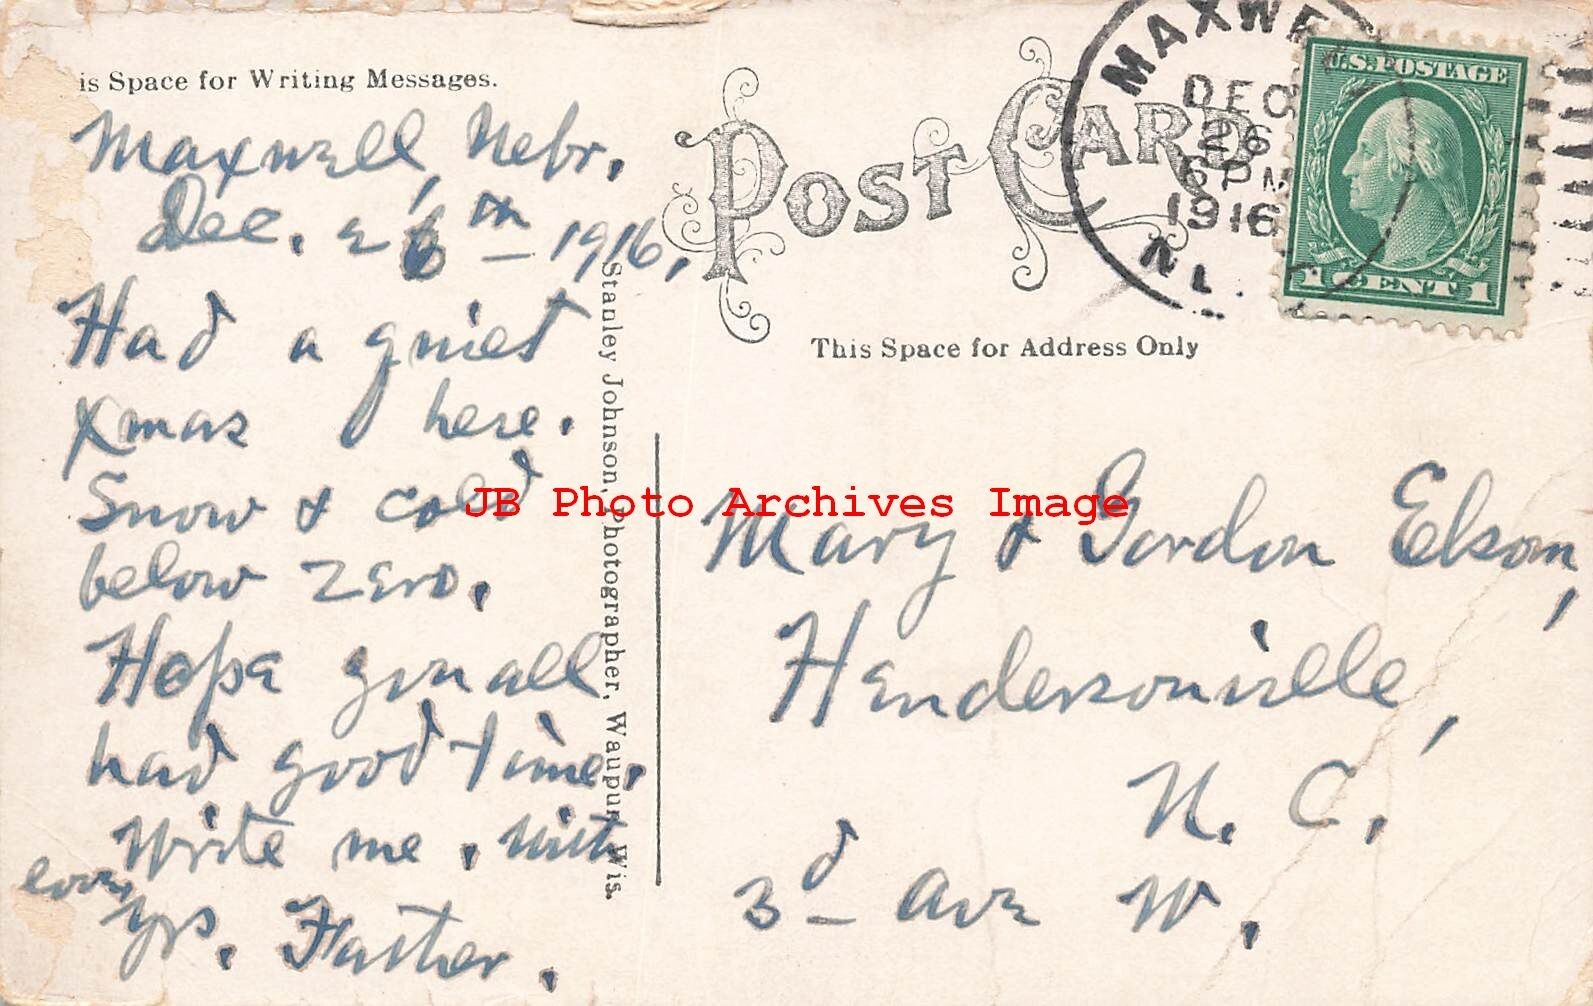 is Space for Writing Messages.
POST CARD
MAXWELL
DEC
26
6 PM
1916
U.S. POSTAGE
1 CENT 1
Maxwell, Nebr.
Dec. 26th – 1916.
Had a quiet
Xmas here.
Snow & cold
below zero.
Hope you all
had good time.
Write me. With
love,
Yrs. Father.
Stanley Johnson, Photographer, Waupun, Wis.
This Space for Address Only
Mary & Gordon Elsom,
Hendersonville,
N. C.
3d Ave W.
JB Photo Archives Image